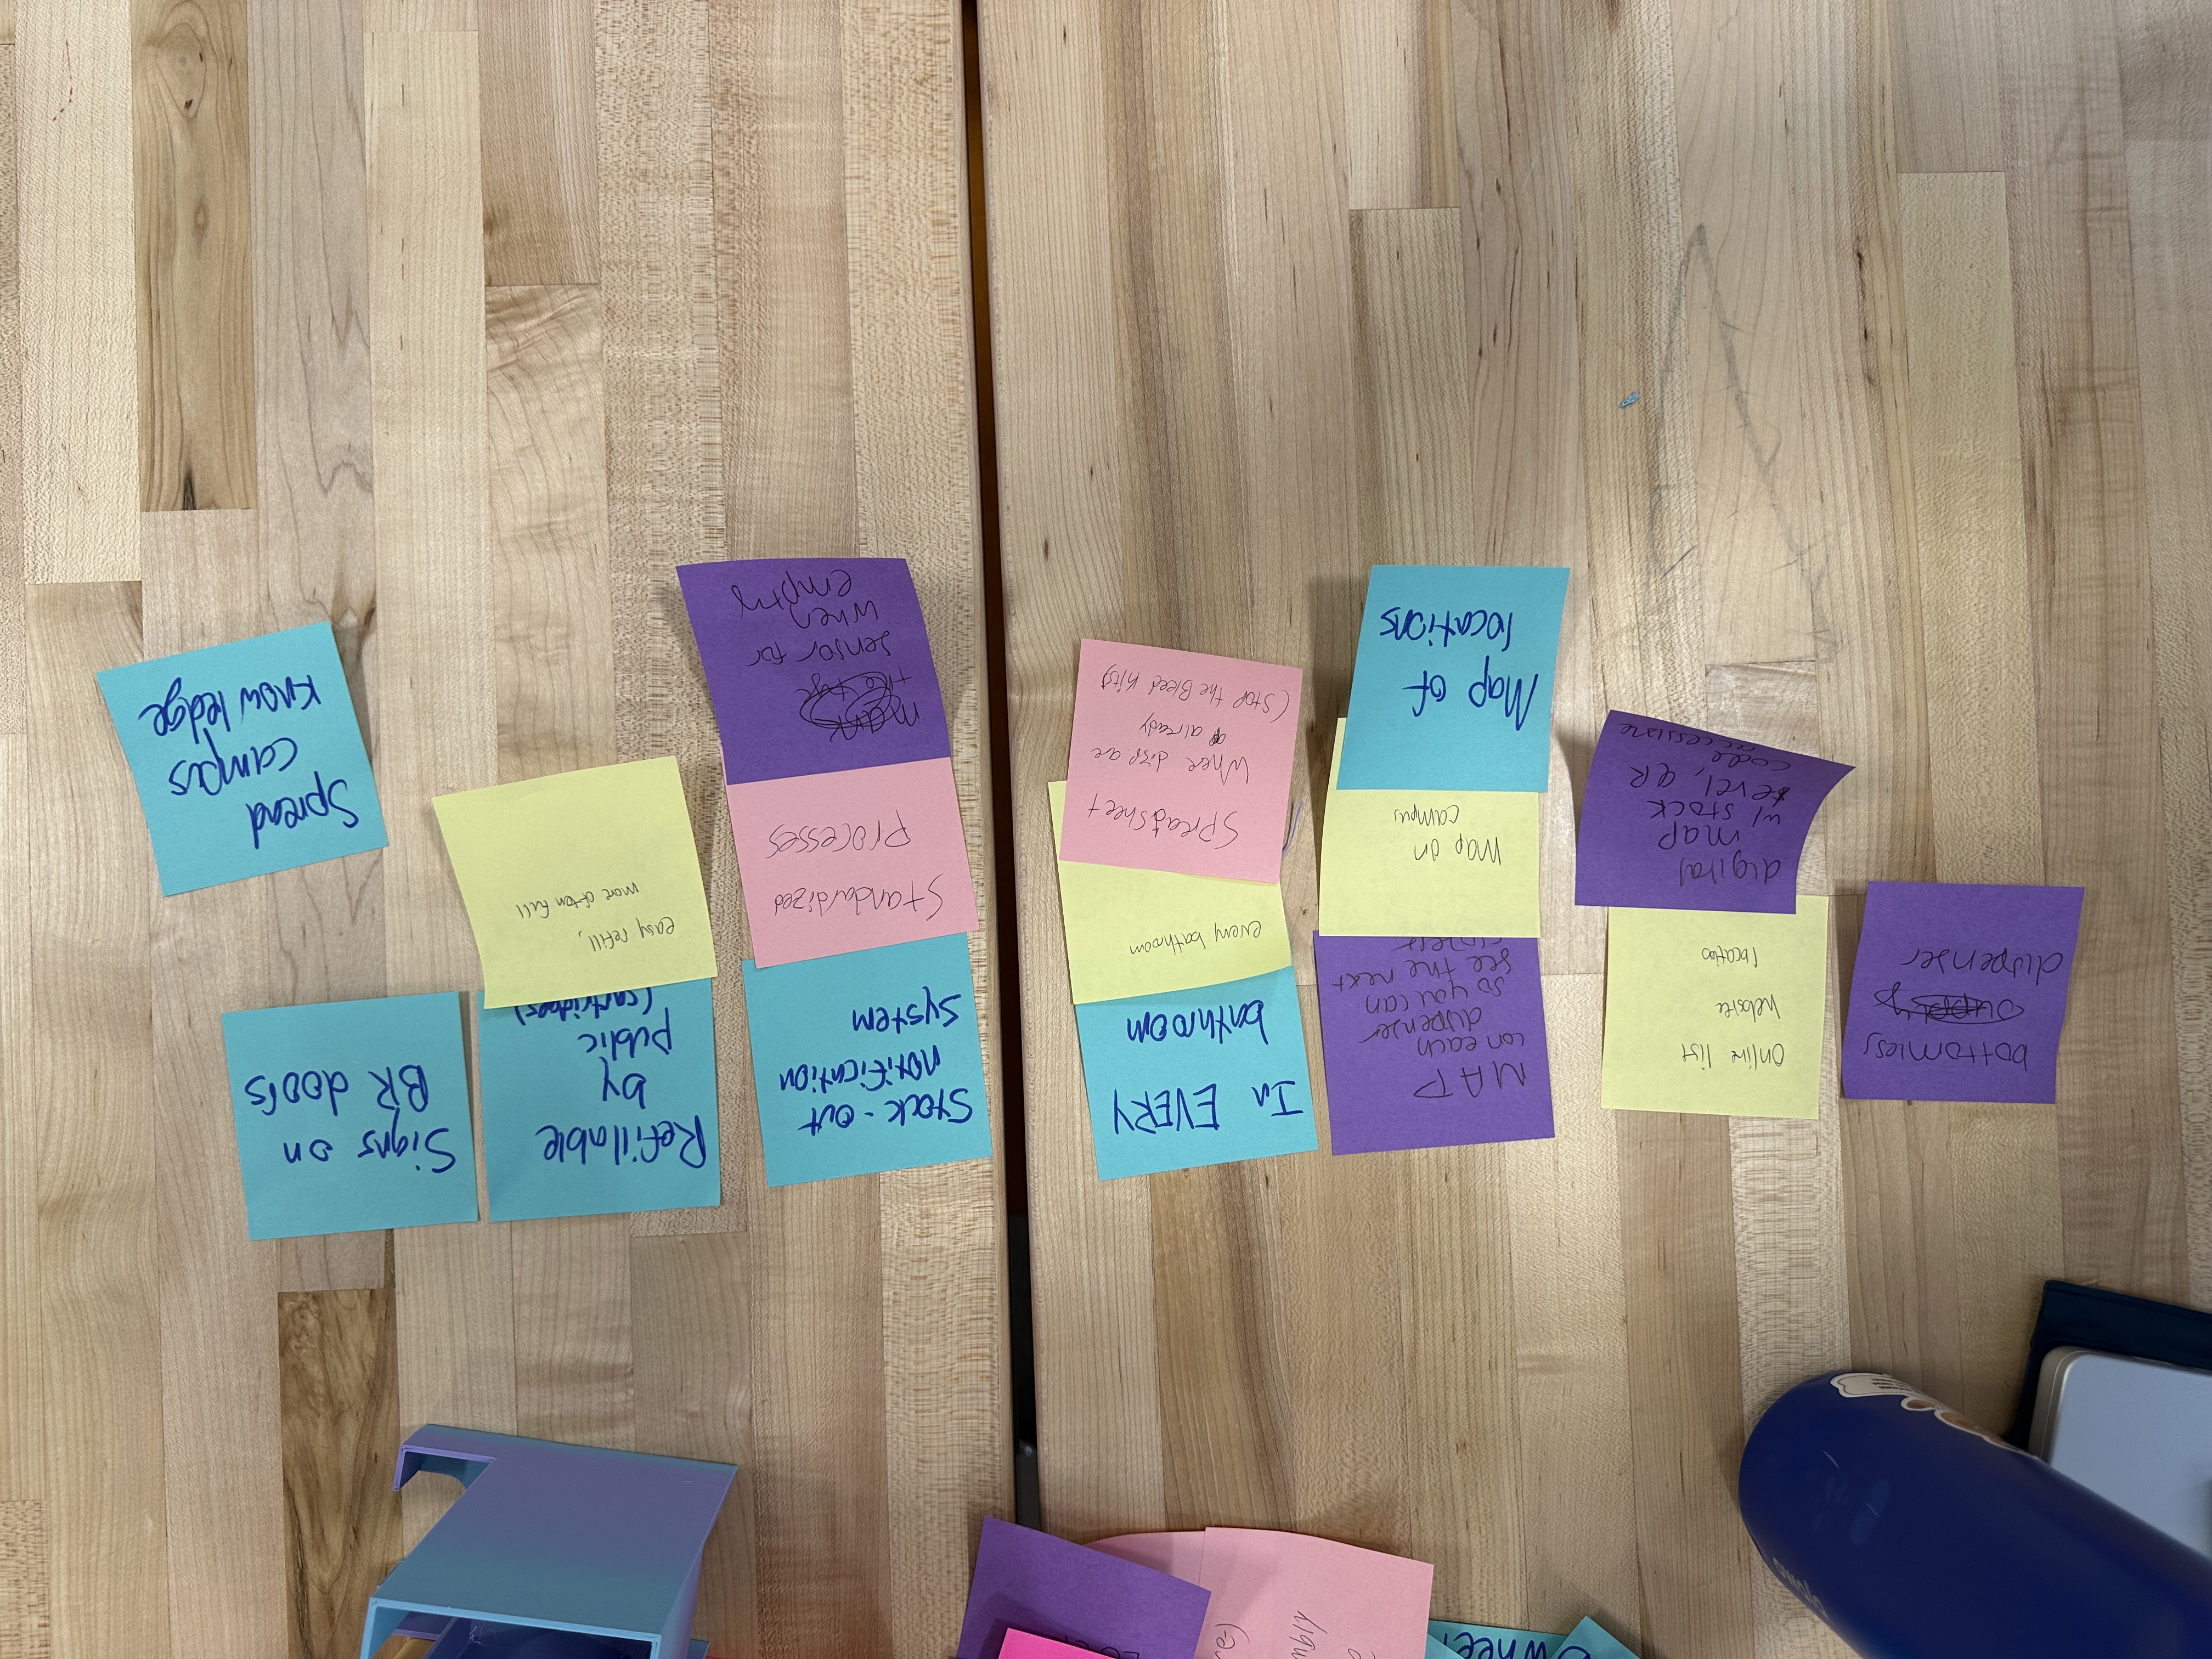 wheel
bottomless
dispenser
Online list
website
digital
map
w/ stock
level, QR
code
accessible
MAP
on each
dispenser
so you can
see the next
closest
Map on
campus
Map of
locations
In EVERY
bathroom
every bathroom
Spreadsheet
Where disp. are
already
(Stop the Bleed Kits)
Stock-out
notification
system
Standardized
processes
mark
the type
sensor for
when
empty
Refillable
by
public
(cartridges)
easy refill,
more often full
Signs on
BR doors
Spread
campus
knowledge